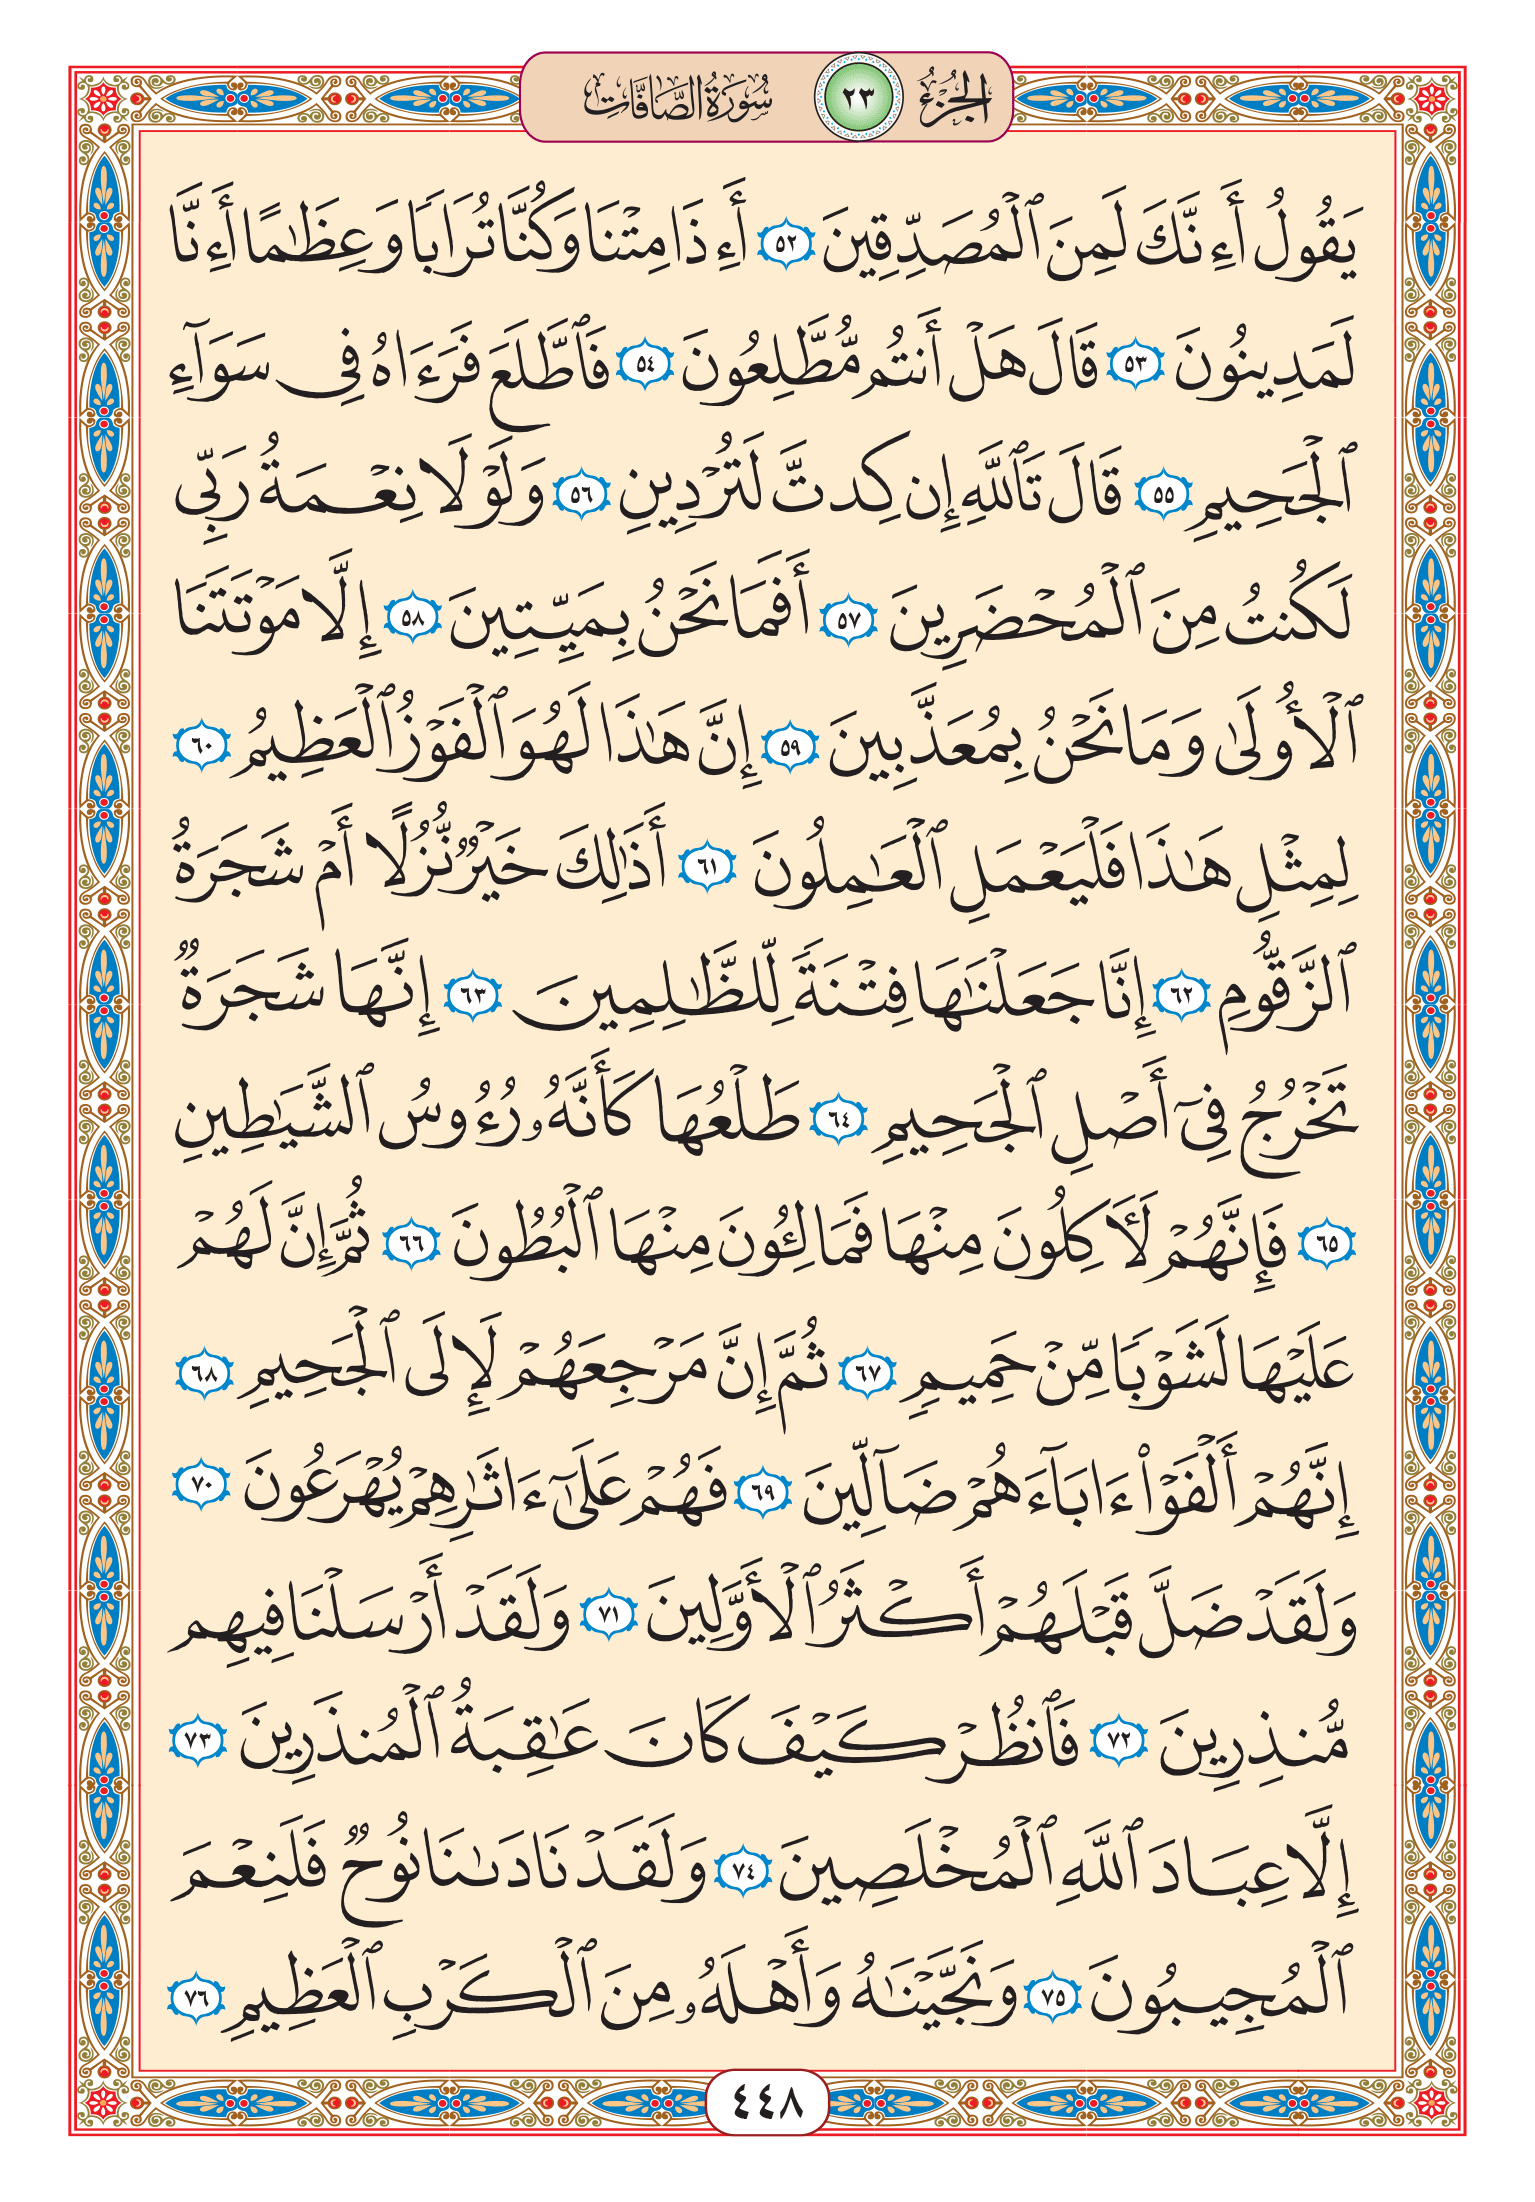 الجزء ٢٣ سورة الصافات
يَقُولُ أَءِنَّكَ لَمِنَ ٱلْمُصَدِّقِينَ ٥٢ أَءِذَا مِتْنَا وَكُنَّا تُرَابًا وَعِظَٰمًا أَءِنَّا
لَمَدِينُونَ ٥٣ قَالَ هَلْ أَنتُم مُّطَّلِعُونَ ٥٤ فَٱطَّلَعَ فَرَءَاهُ فِى سَوَآءِ
ٱلْجَحِيمِ ٥٥ قَالَ تَٱللَّهِ إِن كِدتَّ لَتُرْدِينِ ٥٦ وَلَوْلَا نِعْمَةُ رَبِّى
لَكُنتُ مِنَ ٱلْمُحْضَرِينَ ٥٧ أَفَمَا نَحْنُ بِمَيِّتِينَ ٥٨ إِلَّا مَوْتَتَنَا
ٱلْأُولَىٰ وَمَا نَحْنُ بِمُعَذَّبِينَ ٥٩ إِنَّ هَٰذَا لَهُوَ ٱلْفَوْزُ ٱلْعَظِيمُ ٦٠
لِمِثْلِ هَٰذَا فَلْيَعْمَلِ ٱلْعَٰمِلُونَ ٦١ أَذَٰلِكَ خَيْرٌ نُّزُلًا أَمْ شَجَرَةُ
ٱلزَّقُّومِ ٦٢ إِنَّا جَعَلْنَٰهَا فِتْنَةً لِّلظَّٰلِمِينَ ٦٣ إِنَّهَا شَجَرَةٌ
تَخْرُجُ فِىٓ أَصْلِ ٱلْجَحِيمِ ٦٤ طَلْعُهَا كَأَنَّهُۥ رُءُوسُ ٱلشَّيَٰطِينِ
٦٥ فَإِنَّهُمْ لَءَاكِلُونَ مِنْهَا فَمَالِـُٔونَ مِنْهَا ٱلْبُطُونَ ٦٦ ثُمَّ إِنَّ لَهُمْ
عَلَيْهَا لَشَوْبًا مِّنْ حَمِيمٍ ٦٧ ثُمَّ إِنَّ مَرْجِعَهُمْ لَإِلَى ٱلْجَحِيمِ ٦٨
إِنَّهُمْ أَلْفَوْا۟ ءَابَآءَهُمْ ضَآلِّينَ ٦٩ فَهُمْ عَلَىٰٓ ءَاثَٰرِهِمْ يُهْرَعُونَ ٧٠
وَلَقَدْ ضَلَّ قَبْلَهُمْ أَكْثَرُ ٱلْأَوَّلِينَ ٧١ وَلَقَدْ أَرْسَلْنَا فِيهِم
مُّنذِرِينَ ٧٢ فَٱنظُرْ كَيْفَ كَانَ عَٰقِبَةُ ٱلْمُنذَرِينَ ٧٣
إِلَّا عِبَادَ ٱللَّهِ ٱلْمُخْلَصِينَ ٧٤ وَلَقَدْ نَادَىٰنَا نُوحٌ فَلَنِعْمَ
ٱلْمُجِيبُونَ ٧٥ وَنَجَّيْنَٰهُ وَأَهْلَهُۥ مِنَ ٱلْكَرْبِ ٱلْعَظِيمِ ٧٦
٤٤٨